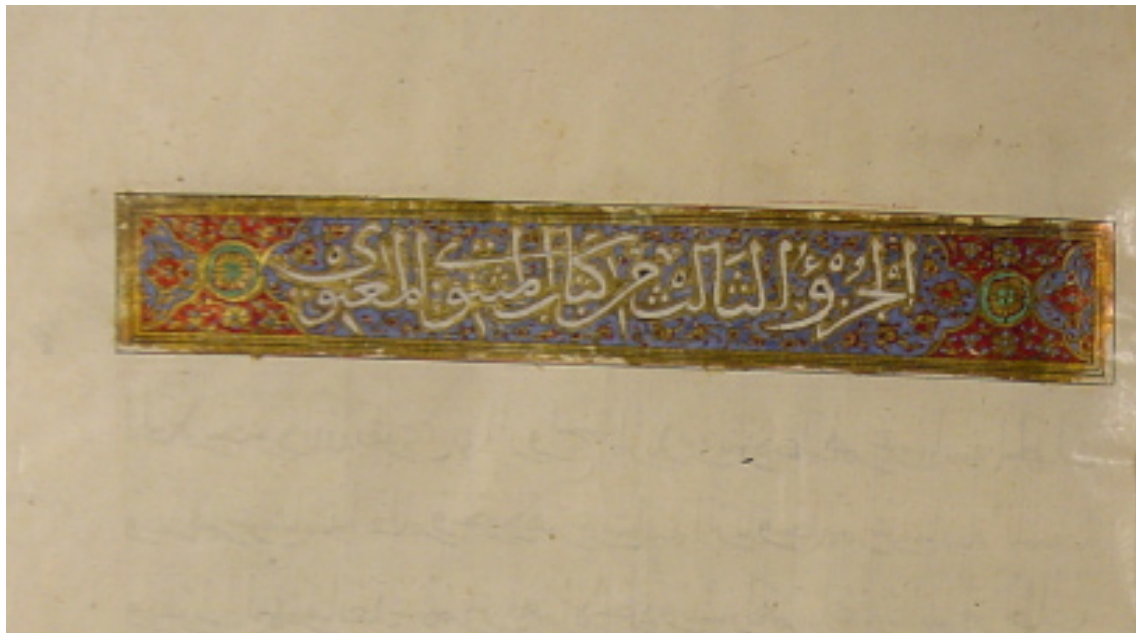 الجزؤ الثالث من كتاب المثنوى المعنوى